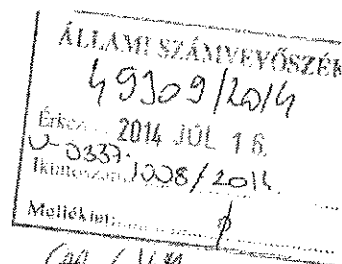 ÁLLAMI SZÁMVEVŐSZÉK
49309/2014
Érkez. 2014 JÚL 16.
V-0337-
Iktatószám: 1008/2014.
Melléklet: ∅